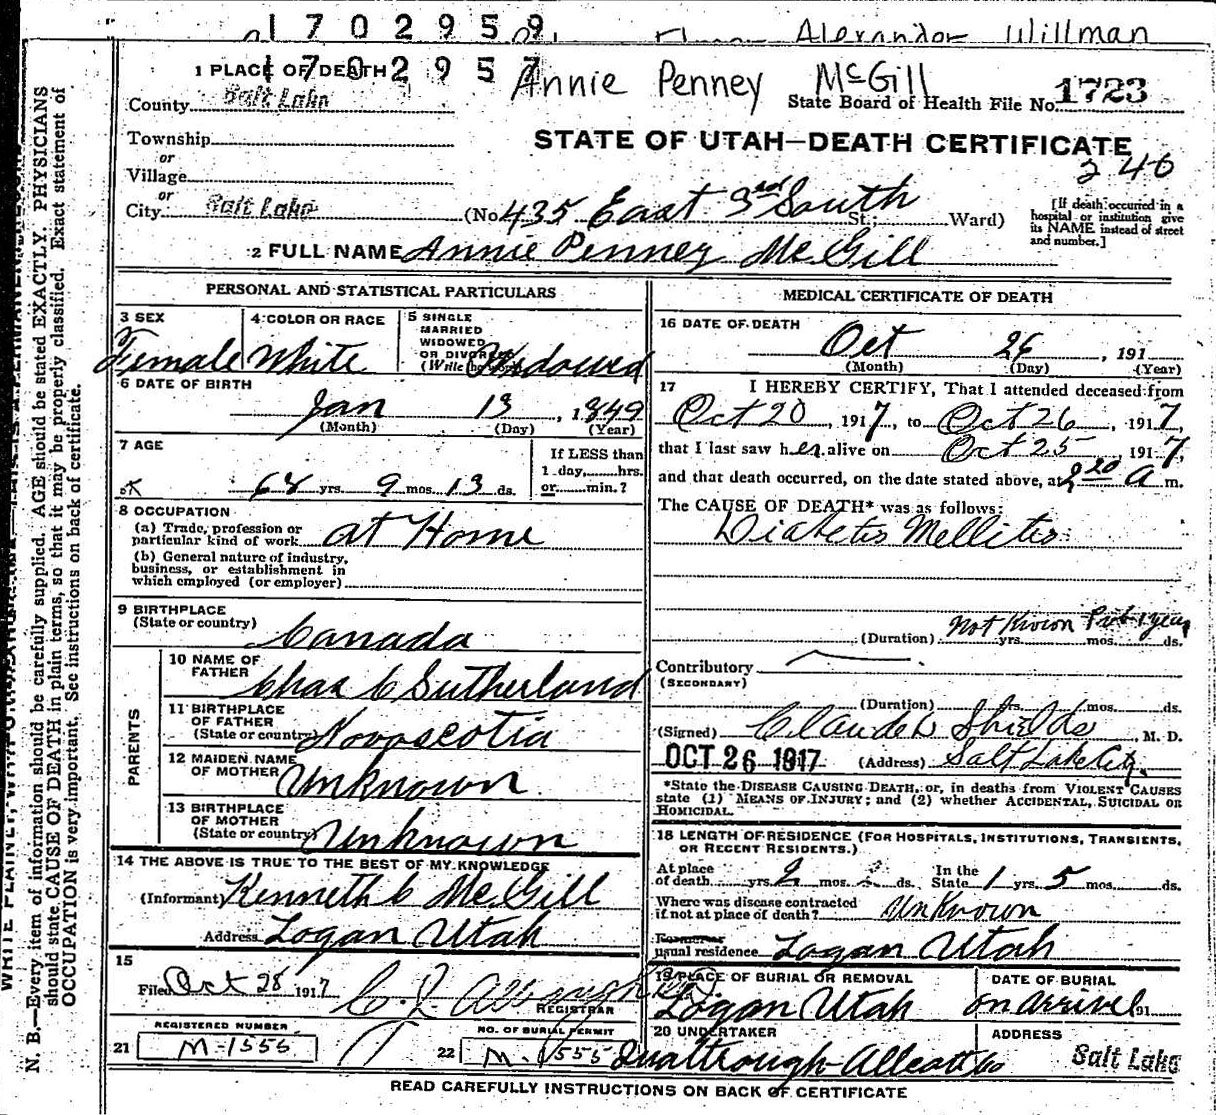 1702959
Alexander Willman
1702957
Annie Penney McGill
1 PLACE OF DEATH
County Salt Lake
State Board of Health File No. 1723
Township
STATE OF UTAH—DEATH CERTIFICATE
or
Village
240
or
City Salt Lake (No. 435 East 3rd South St.; Ward)
[If death occurred in a hospital or institution give its NAME instead of street and number.]
2 FULL NAME Annie Penney McGill
PERSONAL AND STATISTICAL PARTICULARS
3 SEX Female
4 COLOR OR RACE White
5 SINGLE MARRIED WIDOWED OR DIVORCED (Write the word) Widowed
6 DATE OF BIRTH
Jan 13, 1849
(Month) (Day) (Year)
7 AGE
68 yrs. 9 mos. 13 ds.
If LESS than 1 day,......hrs. or......min.?
8 OCCUPATION
(a) Trade, profession or particular kind of work at Home
(b) General nature of industry, business, or establishment in which employed (or employer)
9 BIRTHPLACE
(State or country) Canada
PARENTS
10 NAME OF FATHER Chas C Sutherland
11 BIRTHPLACE OF FATHER (State or country) Novascotia
12 MAIDEN NAME OF MOTHER Unknown
13 BIRTHPLACE OF MOTHER (State or country) Unknown
14 THE ABOVE IS TRUE TO THE BEST OF MY KNOWLEDGE
(Informant) Kenneth C McGill
Address Logan Utah
15
Filed Oct 28 1917
REGISTRAR
REGISTERED NUMBER
21 M-1555
NO. OF BURIAL PERMIT
22 M-1555
MEDICAL CERTIFICATE OF DEATH
16 DATE OF DEATH
Oct 26, 191
(Month) (Day) (Year)
17 I HEREBY CERTIFY, That I attended deceased from
Oct 20 1917, to Oct 26, 1917,
that I last saw her alive on Oct 25, 1917,
and that death occurred, on the date stated above, at 2 20 a m.
The CAUSE OF DEATH* was as follows:
Diabetis Mellitis
(Duration) Not Known yrs. mos. ds.
Contributory
(SECONDARY)
(Duration) yrs. mos. ds.
(Signed) Claude Shields, M. D.
OCT 26 1917 (Address) Salt Lake City.
*State the DISEASE CAUSING DEATH, or, in deaths from VIOLENT CAUSES
state (1) MEANS OF INJURY; and (2) whether ACCIDENTAL, SUICIDAL OR
HOMICIDAL.
18 LENGTH OF RESIDENCE (FOR HOSPITALS, INSTITUTIONS, TRANSIENTS,
OR RECENT RESIDENTS.)
At place of death yrs. 2 mos. ds. In the State 1 yrs. 5 mos. ds.
Where was disease contracted if not at place of death? Unknown
Former or usual residence Logan Utah
19 PLACE OF BURIAL OR REMOVAL
Logan Utah
DATE OF BURIAL
on arrival 191
20 UNDERTAKER
ADDRESS
Salt Lake
READ CAREFULLY INSTRUCTIONS ON BACK OF CERTIFICATE
N. B.—Every item of information should be carefully supplied. AGE should be stated EXACTLY. PHYSICIANS
should state CAUSE OF DEATH in plain terms, so that it may be properly classified. Exact statement of
OCCUPATION is very important. See instructions on back of certificate.